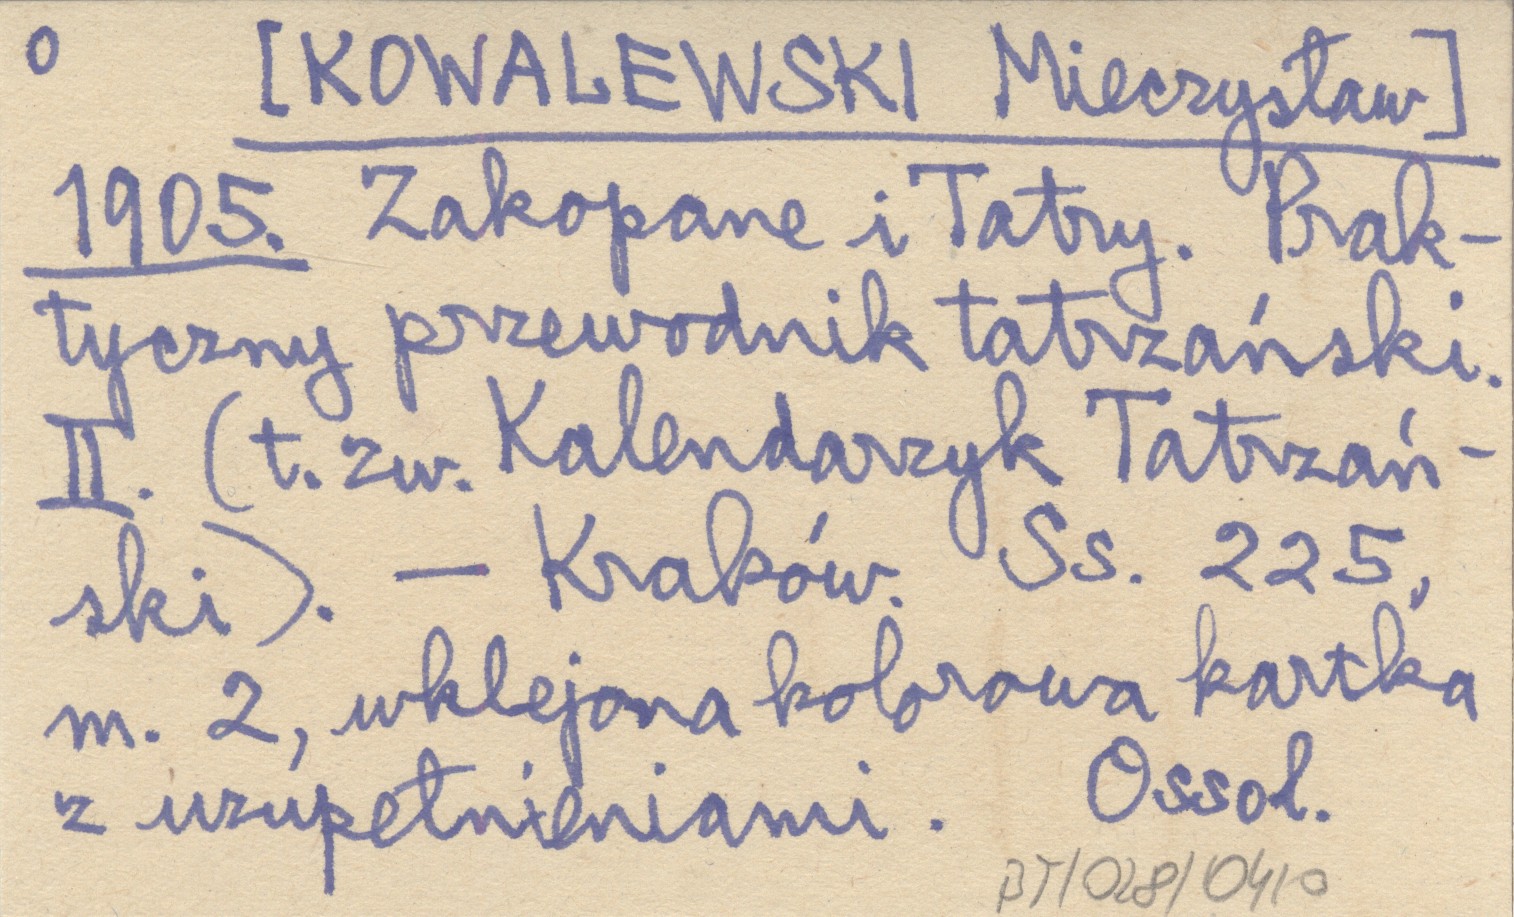 o [KOWALEWSKI Mieczysław]
1905. Zakopane i Tatry. Prak-
tyczny przewodnik tatrzański.
II. (t. zw. Kalendarzyk Tatrzań-
ski). — Kraków. Ss. 225,
m. 2, wklejona kolorowa kartka
z uzupełnieniami. Ossol.
BT/028/0410